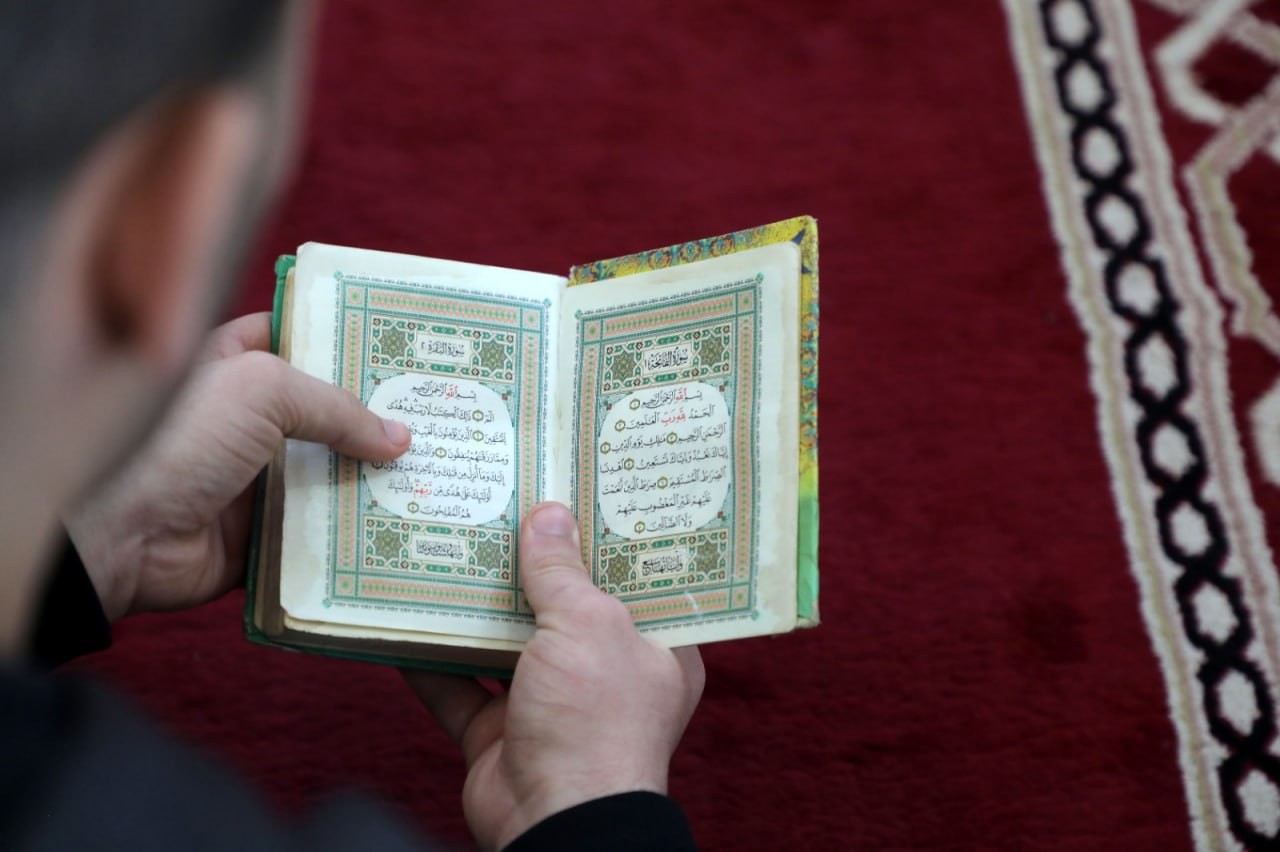 سُورَةُ الْفَاتِحَةِ ١
بِسْمِ اللَّهِ الرَّحْمَٰنِ الرَّحِيمِ ١
الْحَمْدُ لِلَّهِ رَبِّ الْعَٰلَمِينَ ٢
الرَّحْمَٰنِ الرَّحِيمِ ٣ مَٰلِكِ يَوْمِ الدِّينِ ٤
إِيَّاكَ نَعْبُدُ وَإِيَّاكَ نَسْتَعِينُ ٥ اهْدِنَا
الصِّرَٰطَ الْمُسْتَقِيمَ ٦ صِرَٰطَ الَّذِينَ أَنْعَمْتَ
عَلَيْهِمْ غَيْرِ الْمَغْضُوبِ عَلَيْهِمْ
وَلَا الضَّآلِّينَ ٧
وَآيَاتُهَا سَبْعٌ
سُورَةُ الْبَقَرَةِ ٢
بِسْمِ اللَّهِ الرَّحْمَٰنِ الرَّحِيمِ
الٓمٓ ١ ذَٰلِكَ الْكِتَٰبُ لَا رَيْبَ فِيهِ هُدًى
لِلْمُتَّقِينَ ٢ الَّذِينَ يُؤْمِنُونَ بِالْغَيْبِ
وَمِمَّا رَزَقْنَٰهُمْ يُنفِقُونَ ٣ وَالَّذِينَ
إِلَيْكَ وَمَا أُنزِلَ مِن قَبْلِكَ وَبِالْآخِرَةِ هُمْ يُوقِنُونَ ٤
أُولَٰئِكَ عَلَىٰ هُدًى مِن رَّبِّهِمْ وَأُولَٰئِكَ
هُمُ الْمُفْلِحُونَ ٥